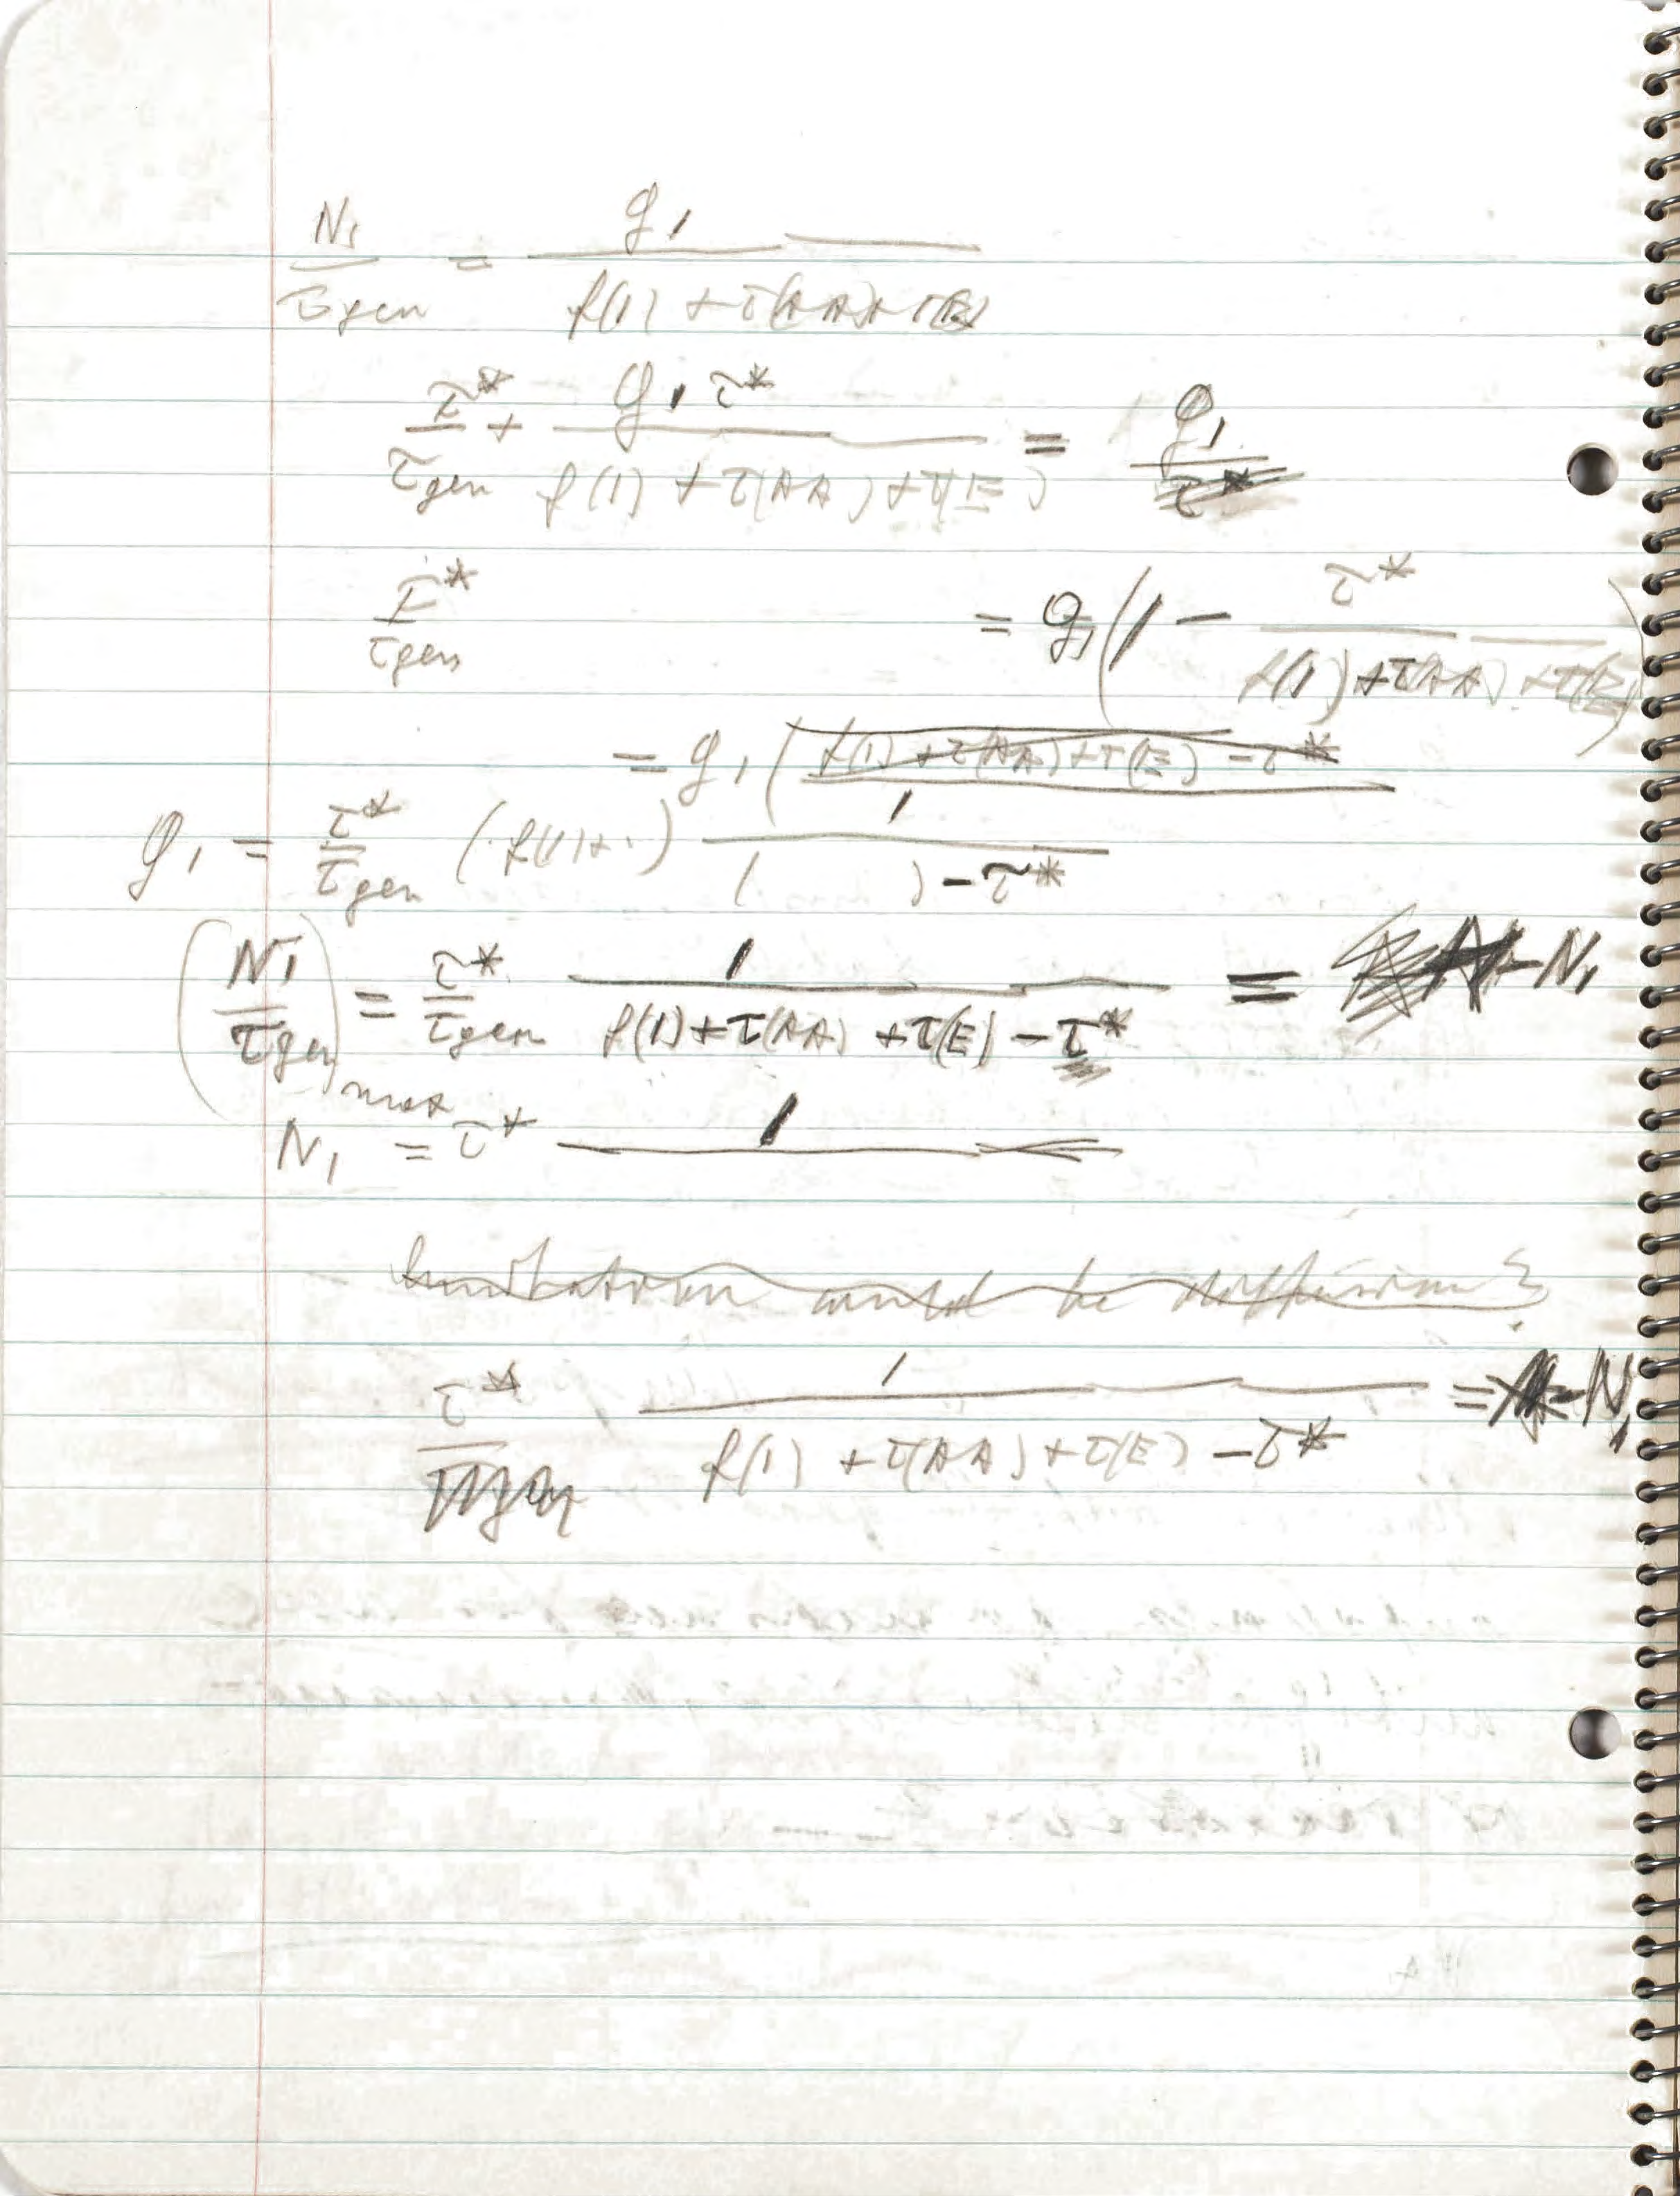 N₁/τgen = g₁/(f(1) + τ(AA) + τ(E))
τ*/τgen + g₁τ*/(f(1) + τ(AA) + τ(E)) = g₁/τ*
τ*/τgen = g₁(1 − τ*/(f(1) + τ(AA) + τ(E)))
= g₁ ( f(1) + τ(AA) + τ(E) − τ*
g₁ = τ*/τgen (f(1)+.) 1/(( ) − τ*)
(N₁/τgen)max = τ*/τgen 1/(f(1) + τ(AA) + τ(E) − τ*) = N₁
N₁ = τ* 1/
limitation would be diffusion?
τ*/τgen 1/(f(1) + τ(AA) + τ(E) − τ*) = N₁